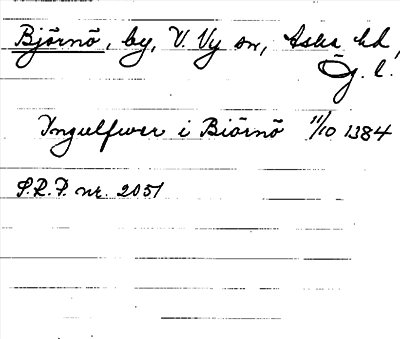 Björnö, by, V. Ny sn, Aska hd,
Ög. l.
Yngulfwer i Biörnö 11/10 1384
S.R.P. nr. 2051